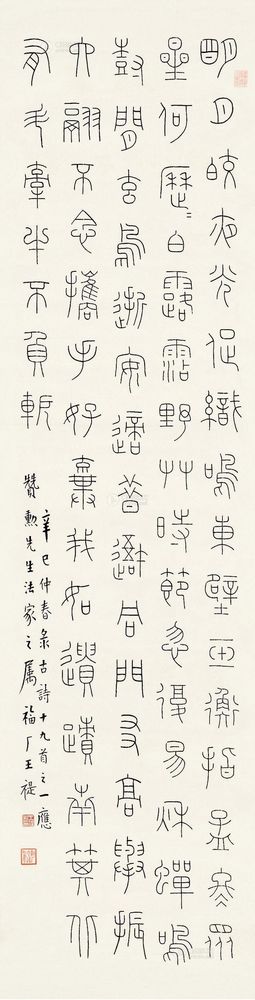 明月皎夜光促織鳴東壁玉衡指孟冬眾
星何歷〻白露霑野艸時節忽復易秌蟬鳴
尌間玄鳥逝安適昔我同門友高舉振
六翮不念攜手好棄我如遺蹟南箕北
有斗牽牛不負軛
辛巳仲春彔古詩十九首之一應
贊勳先生法家之屬 福厂王禔